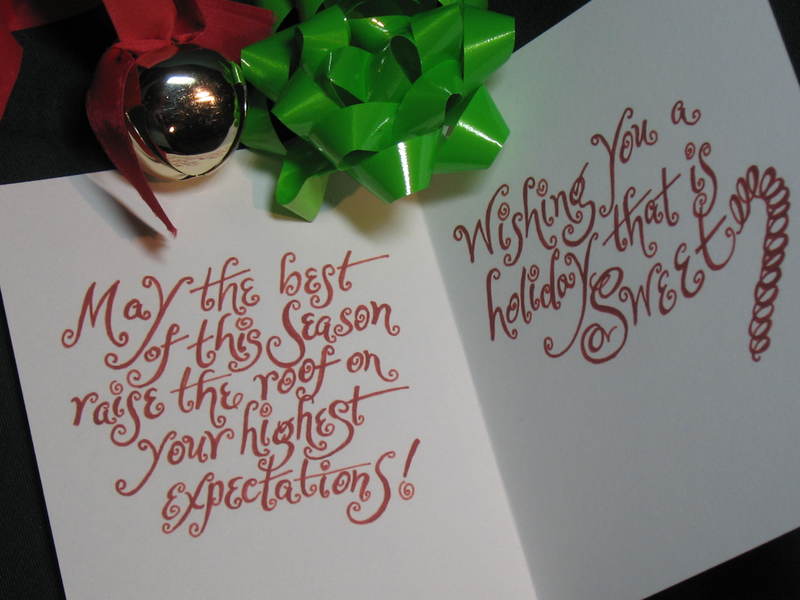 May the best
of this Season
raise the roof on
your highest
expectations!
Wishing you a
holiday that is
Sweet